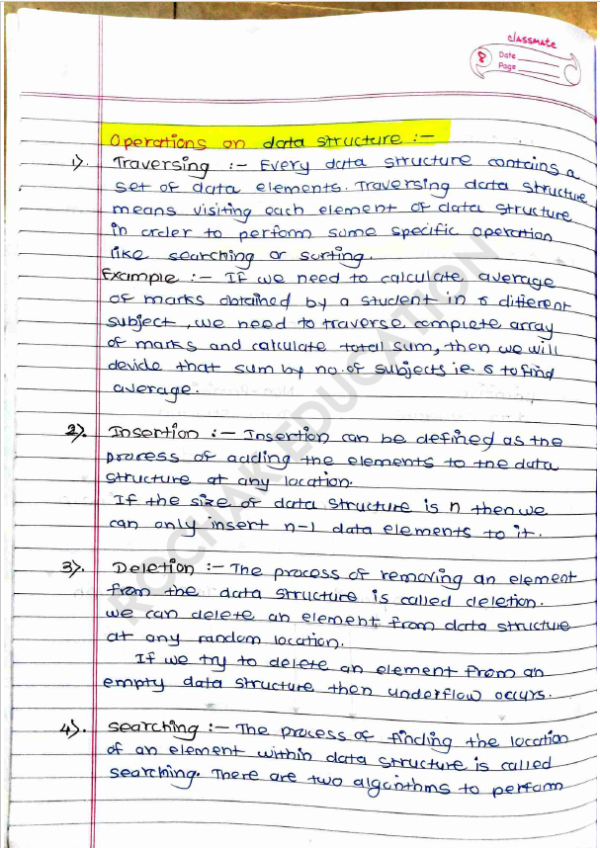 classmate
8
Date
Page
Operations on data structure :-
1). Traversing :- Every data structure contains a
set of data elements. Traversing data structure
means visiting each element of data structure
in order to perform some specific operation
like searching or sorting.
Example :- If we need to calculate average
of marks obtained by a student in 6 different
subject, we need to traverse complete array
of marks and calculate total sum, then we will
devide that sum by no. of subjects i.e. 6 to find
average.
2). Insertion :- Insertion can be defined as the
process of adding the elements to the data
structure at any location.
If the size of data structure is n then we
can only insert n-1 data elements to it.
3). Deletion :- The process of removing an element
from the data structure is called deletion.
we can delete an element from data structure
at any random location.
If we try to delete an element from an
empty data structure then underflow occurs.
4). searching :- The process of finding the location
of an element within data structure is called
searching. There are two algorithms to perform
ROCHAK EDUCATION